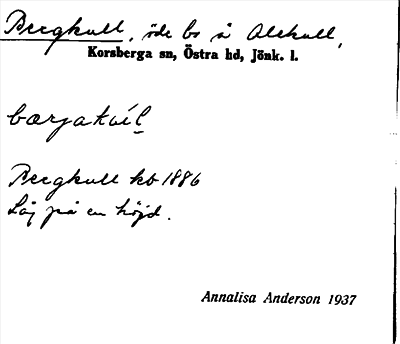 Bergkull, öde bs å Alekull,
Korsberga sn, Östra hd, Jönk. l.
bærjakúl̠
Bergkull kb 1886
Låg på en höjd.
Annalisa Anderson 1937